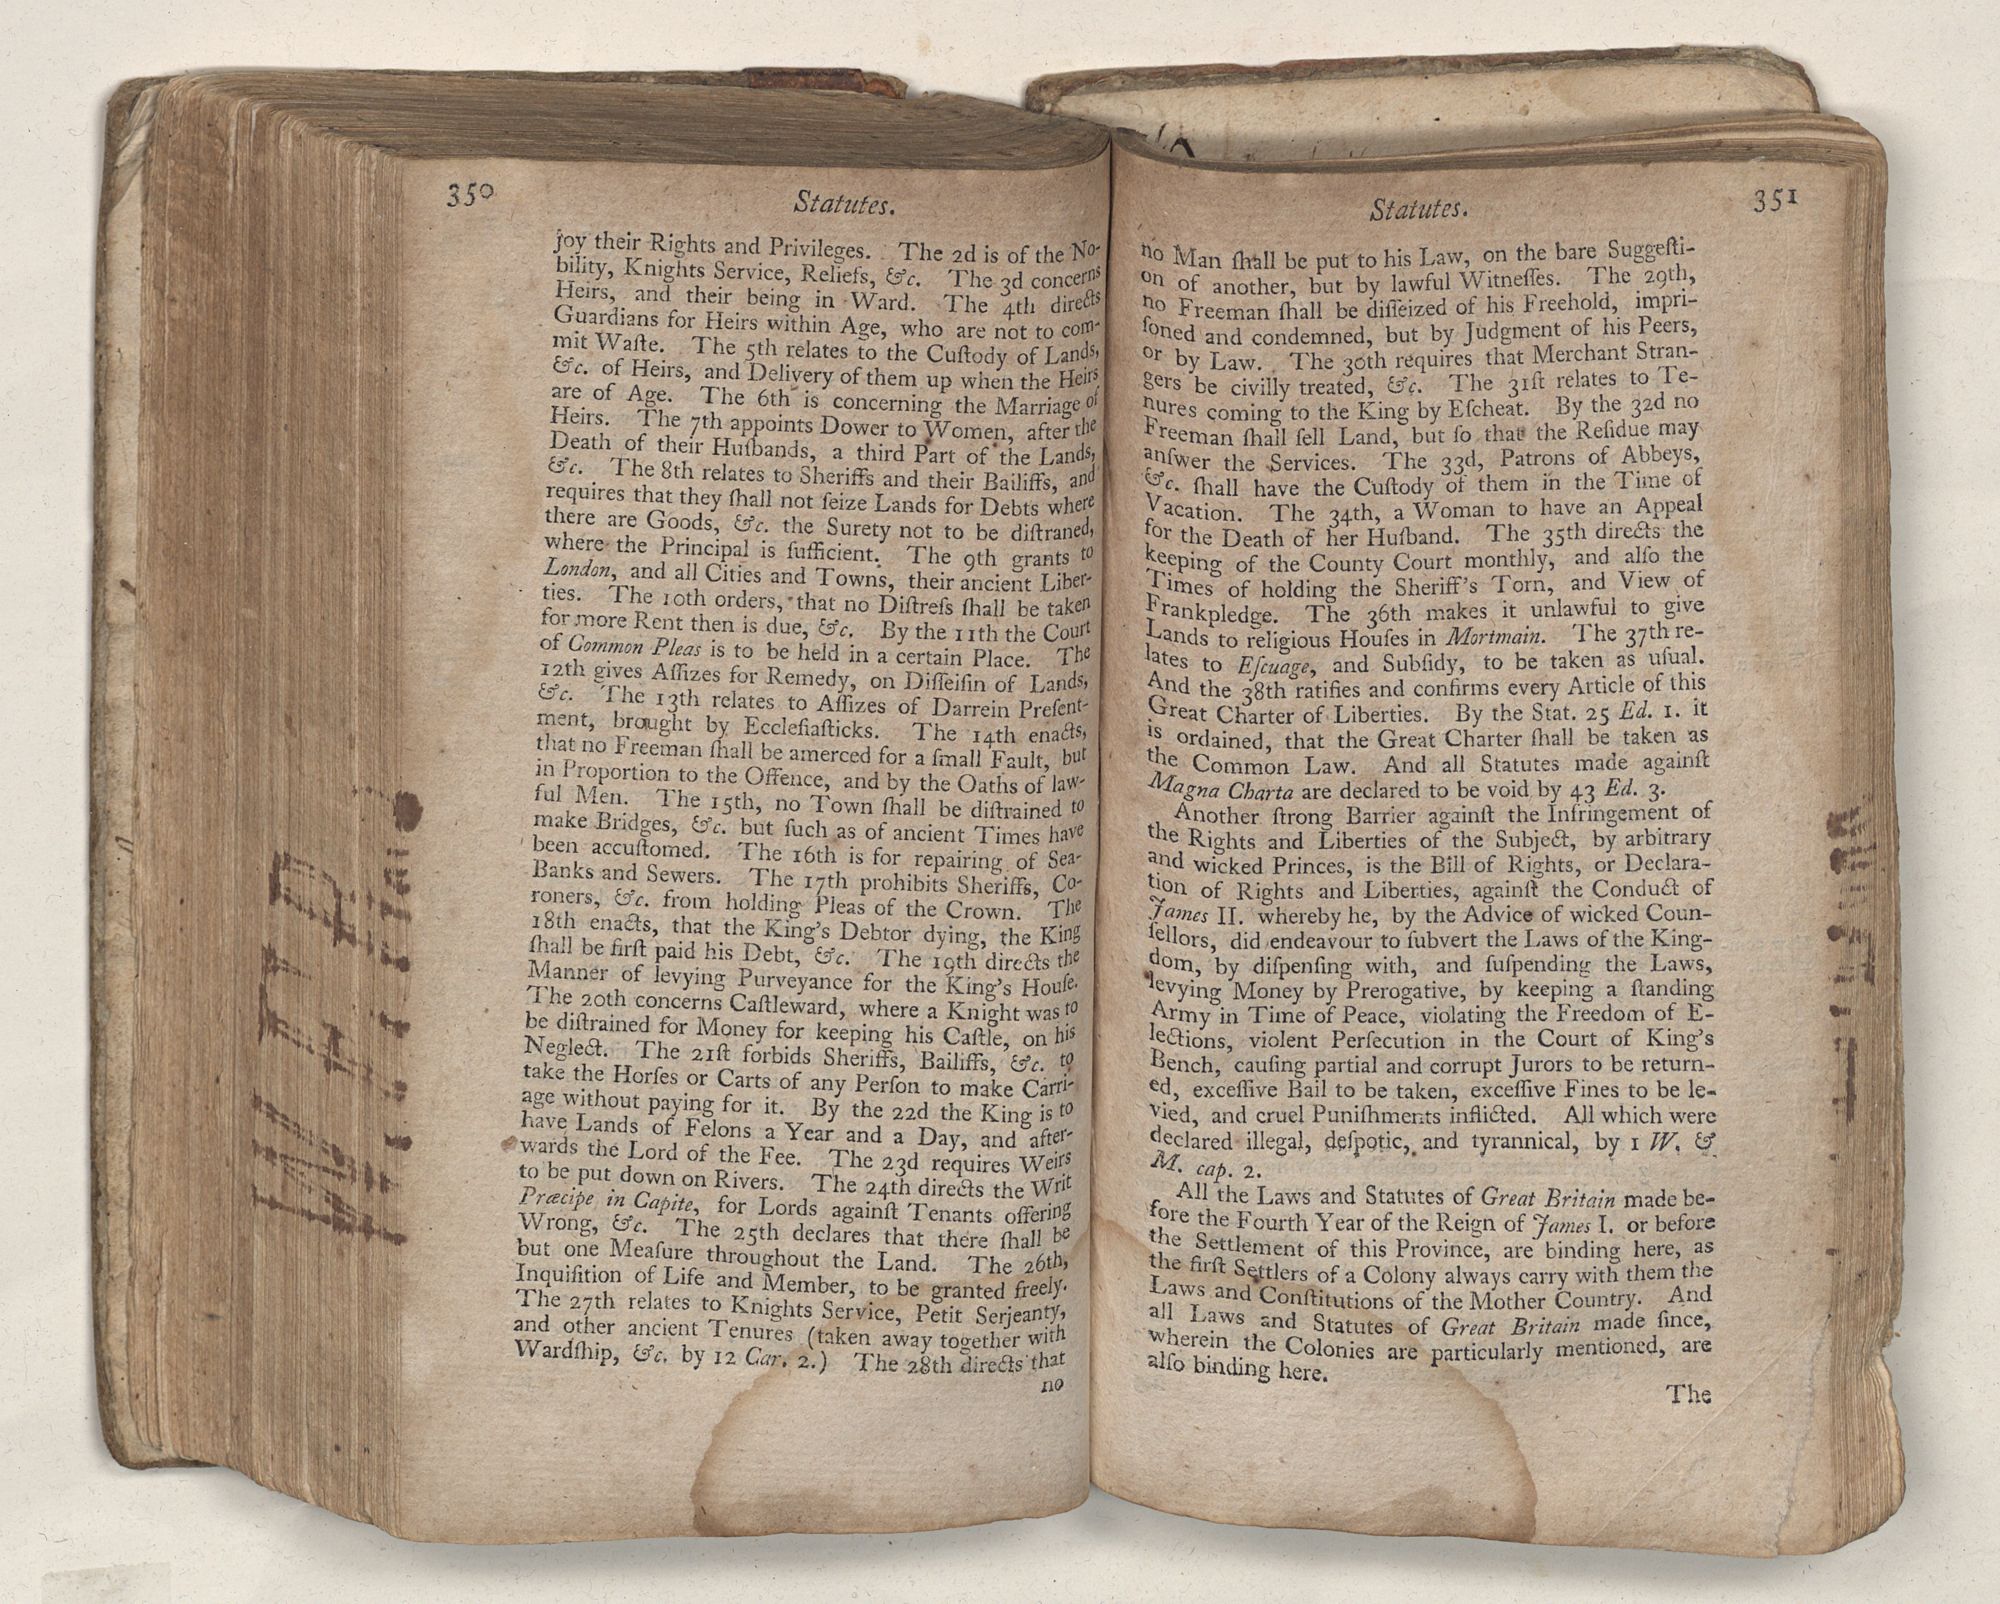 350
Statutes.
joy their Rights and Privileges. The 2d is of the No-
bility, Knights Service, Reliefs, &c. The 3d concerns
Heirs, and their being in Ward. The 4th directs
Guardians for Heirs within Age, who are not to com-
mit Waſte. The 5th relates to the Cuſtody of Lands,
&c. of Heirs, and Delivery of them up when the Heirs
are of Age. The 6th is concerning the Marriage of
Heirs. The 7th appoints Dower to Women, after the
Death of their Huſbands, a third Part of the Lands,
&c. The 8th relates to Sheriffs and their Bailiffs, and
requires that they ſhall not ſeize Lands for Debts where
there are Goods, &c. the Surety not to be diſtraned,
where the Principal is ſufficient. The 9th grants to
London, and all Cities and Towns, their ancient Liber-
ties. The 10th orders, that no Diſtreſs ſhall be taken
for more Rent then is due, &c. By the 11th the Court
of Common Pleas is to be held in a certain Place. The
12th gives Aſſizes for Remedy, on Diſſeiſin of Lands,
&c. The 13th relates to Aſſizes of Darrein Preſent-
ment, brought by Eccleſiaſticks. The 14th enacts,
that no Freeman ſhall be amerced for a ſmall Fault, but
in Proportion to the Offence, and by the Oaths of law-
ful Men. The 15th, no Town ſhall be diſtrained to
make Bridges, &c. but ſuch as of ancient Times have
been accuſtomed. The 16th is for repairing of Sea-
Banks and Sewers. The 17th prohibits Sheriffs, Co-
roners, &c. from holding Pleas of the Crown. The
18th enacts, that the King's Debtor dying, the King
ſhall be firſt paid his Debt, &c. The 19th directs the
Manner of levying Purveyance for the King's Houſe.
The 20th concerns Caſtleward, where a Knight was to
be diſtrained for Money for keeping his Caſtle, on his
Neglect. The 21ſt forbids Sheriffs, Bailiffs, &c. to
take the Horſes or Carts of any Perſon to make Carri-
age without paying for it. By the 22d the King is to
have Lands of Felons a Year and a Day, and after-
wards the Lord of the Fee. The 23d requires Weirs
to be put down on Rivers. The 24th directs the Writ
Præcipe in Capite, for Lords againſt Tenants offering
Wrong, &c. The 25th declares that there ſhall be
but one Meaſure throughout the Land. The 26th,
Inquiſition of Life and Member, to be granted freely.
The 27th relates to Knights Service, Petit Serjeanty,
and other ancient Tenures (taken away together with
Wardſhip, &c. by 12 Car. 2.) The 28th directs that
no
351
Statutes.
no Man ſhall be put to his Law, on the bare Suggeſti-
on of another, but by lawful Witneſſes. The 29th,
no Freeman ſhall be diſſeized of his Freehold, impri-
ſoned and condemned, but by Judgment of his Peers,
or by Law. The 30th requires that Merchant Stran-
gers be civilly treated, &c. The 31ſt relates to Te-
nures coming to the King by Eſcheat. By the 32d no
Freeman ſhall ſell Land, but ſo that the Reſidue may
anſwer the Services. The 33d, Patrons of Abbeys,
&c. ſhall have the Cuſtody of them in the Time of
Vacation. The 34th, a Woman to have an Appeal
for the Death of her Huſband. The 35th directs the
keeping of the County Court monthly, and alſo the
Times of holding the Sheriff's Torn, and View of
Frankpledge. The 36th makes it unlawful to give
Lands to religious Houſes in Mortmain. The 37th re-
lates to Eſcuage, and Subſidy, to be taken as uſual.
And the 38th ratifies and confirms every Article of this
Great Charter of Liberties. By the Stat. 25 Ed. 1. it
is ordained, that the Great Charter ſhall be taken as
the Common Law. And all Statutes made againſt
Magna Charta are declared to be void by 43 Ed. 3.
Another ſtrong Barrier againſt the Infringement of
the Rights and Liberties of the Subject, by arbitrary
and wicked Princes, is the Bill of Rights, or Declara-
tion of Rights and Liberties, againſt the Conduct of
James II. whereby he, by the Advice of wicked Coun-
ſellors, did endeavour to ſubvert the Laws of the King-
dom, by diſpenſing with, and ſuſpending the Laws,
levying Money by Prerogative, by keeping a ſtanding
Army in Time of Peace, violating the Freedom of E-
lections, violent Perſecution in the Court of King's
Bench, cauſing partial and corrupt Jurors to be return-
ed, exceſſive Bail to be taken, exceſſive Fines to be le-
vied, and cruel Puniſhments inflicted. All which were
declared illegal, deſpotic, and tyrannical, by 1 W. &
M. cap. 2.
All the Laws and Statutes of Great Britain made be-
fore the Fourth Year of the Reign of James I. or before
the Settlement of this Province, are binding here, as
the firſt Settlers of a Colony always carry with them the
Laws and Conſtitutions of the Mother Country. And
all Laws and Statutes of Great Britain made ſince,
wherein the Colonies are particularly mentioned, are
alſo binding here.
The